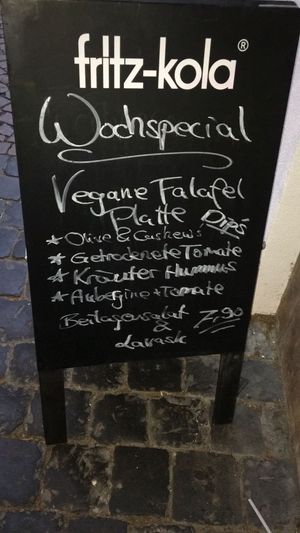 fritz-kola®
Wochspecial
Vegane Falafel
Platte Dips
* Olive & Cashews
* Getrocknete Tomate
* Kräuter Hummus
* Aubergine + Tomate
Beilagensalat 7,90
&
Lavash